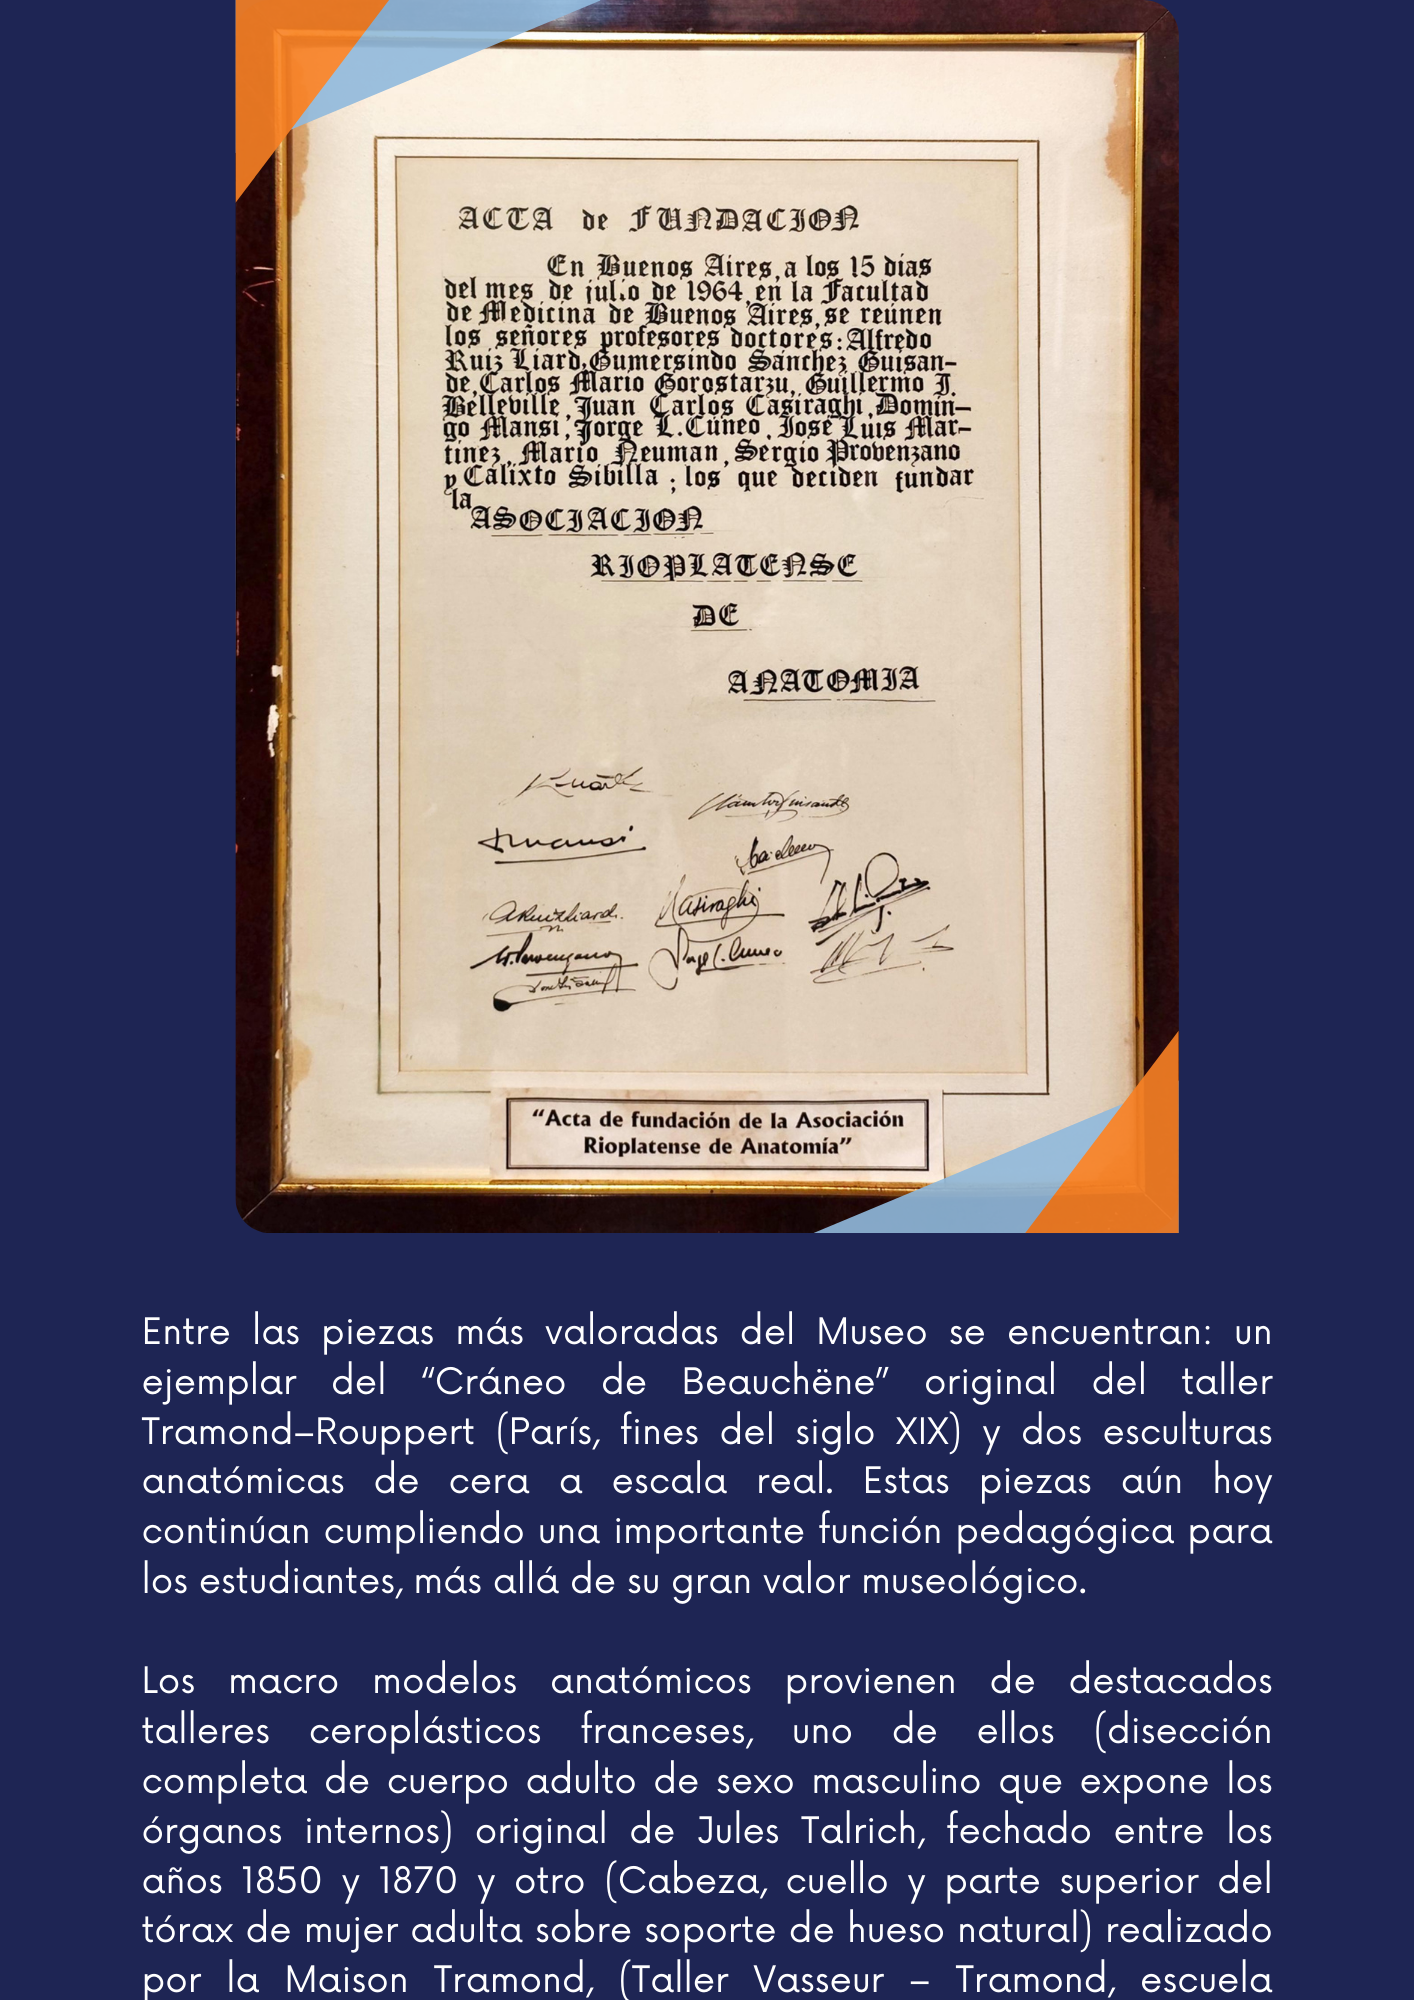 ACTA de FUNDACION
En Buenos Aires, a los 15 dias
del mes de julio de 1964, en la Facultad
de Medicina de Buenos Aires, se reúnen
los señores profesores doctores: Alfredo
Ruiz Liard, Gumersindo Sánchez Guisan-
de, Carlos Mario Gorostarzu, Guillermo J.
Belleville, Juan Carlos Casiraghi, Domin-
go Mansi, Jorge L. Cúneo, José Luis Mar-
tinez, Mario Neuman, Sergio Provenzano
y Calixto Sibilla ; los que deciden fundar
la
ASOCIACION
RIOPLATENSE
DE
ANATOMIA
“Acta de fundación de la Asociación
Rioplatense de Anatomía”
Entre las piezas más valoradas del Museo se encuentran: un
ejemplar del “Cráneo de Beauchëne” original del taller
Tramond–Rouppert (París, fines del siglo XIX) y dos esculturas
anatómicas de cera a escala real. Estas piezas aún hoy
continúan cumpliendo una importante función pedagógica para
los estudiantes, más allá de su gran valor museológico.
Los macro modelos anatómicos provienen de destacados
talleres ceroplásticos franceses, uno de ellos (disección
completa de cuerpo adulto de sexo masculino que expone los
órganos internos) original de Jules Talrich, fechado entre los
años 1850 y 1870 y otro (Cabeza, cuello y parte superior del
tórax de mujer adulta sobre soporte de hueso natural) realizado
por la Maison Tramond, (Taller Vasseur – Tramond, escuela